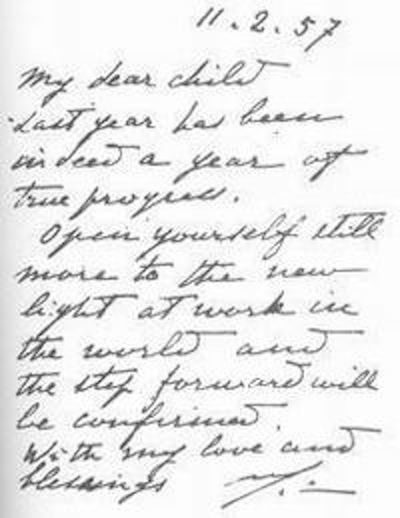 11.2.57
My dear child
Last year has been
indeed a year of
true progress.
Open yourself still
more to the new
light at work in
the world and
the step forward will
be confirmed.
With my love and
blessings